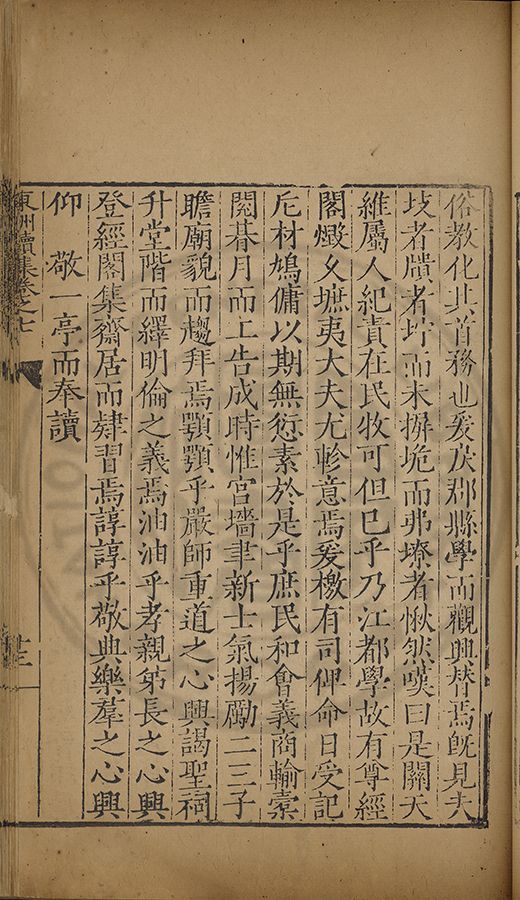 俗教化其首務也爰戾郡縣學而觀興替焉旣見夫
圮者隤者坋而未搟垝而弗墽者愀然嘆曰是關天
維屬人紀責在民牧可但已乎乃江都學故有尊經
閣燬乆墟夷大夫尤軫意焉爰檄有司仰命日受記
庀材鳩傭以期無愆素於是乎庶民和會義商輸橐
閱朞月而工告成時惟宮墻聿新士氣揚勵二三子
瞻廟貌而趨拜焉顎顎乎嚴師重道之心興謁聖祠
升堂階而繹明倫之義焉油油乎孝親弟長之心興
登經閣集齋居而肄習焉諄諄乎敬典樂羣之心興
仰　敬一亭而奉讀
東州續集卷之七
十三